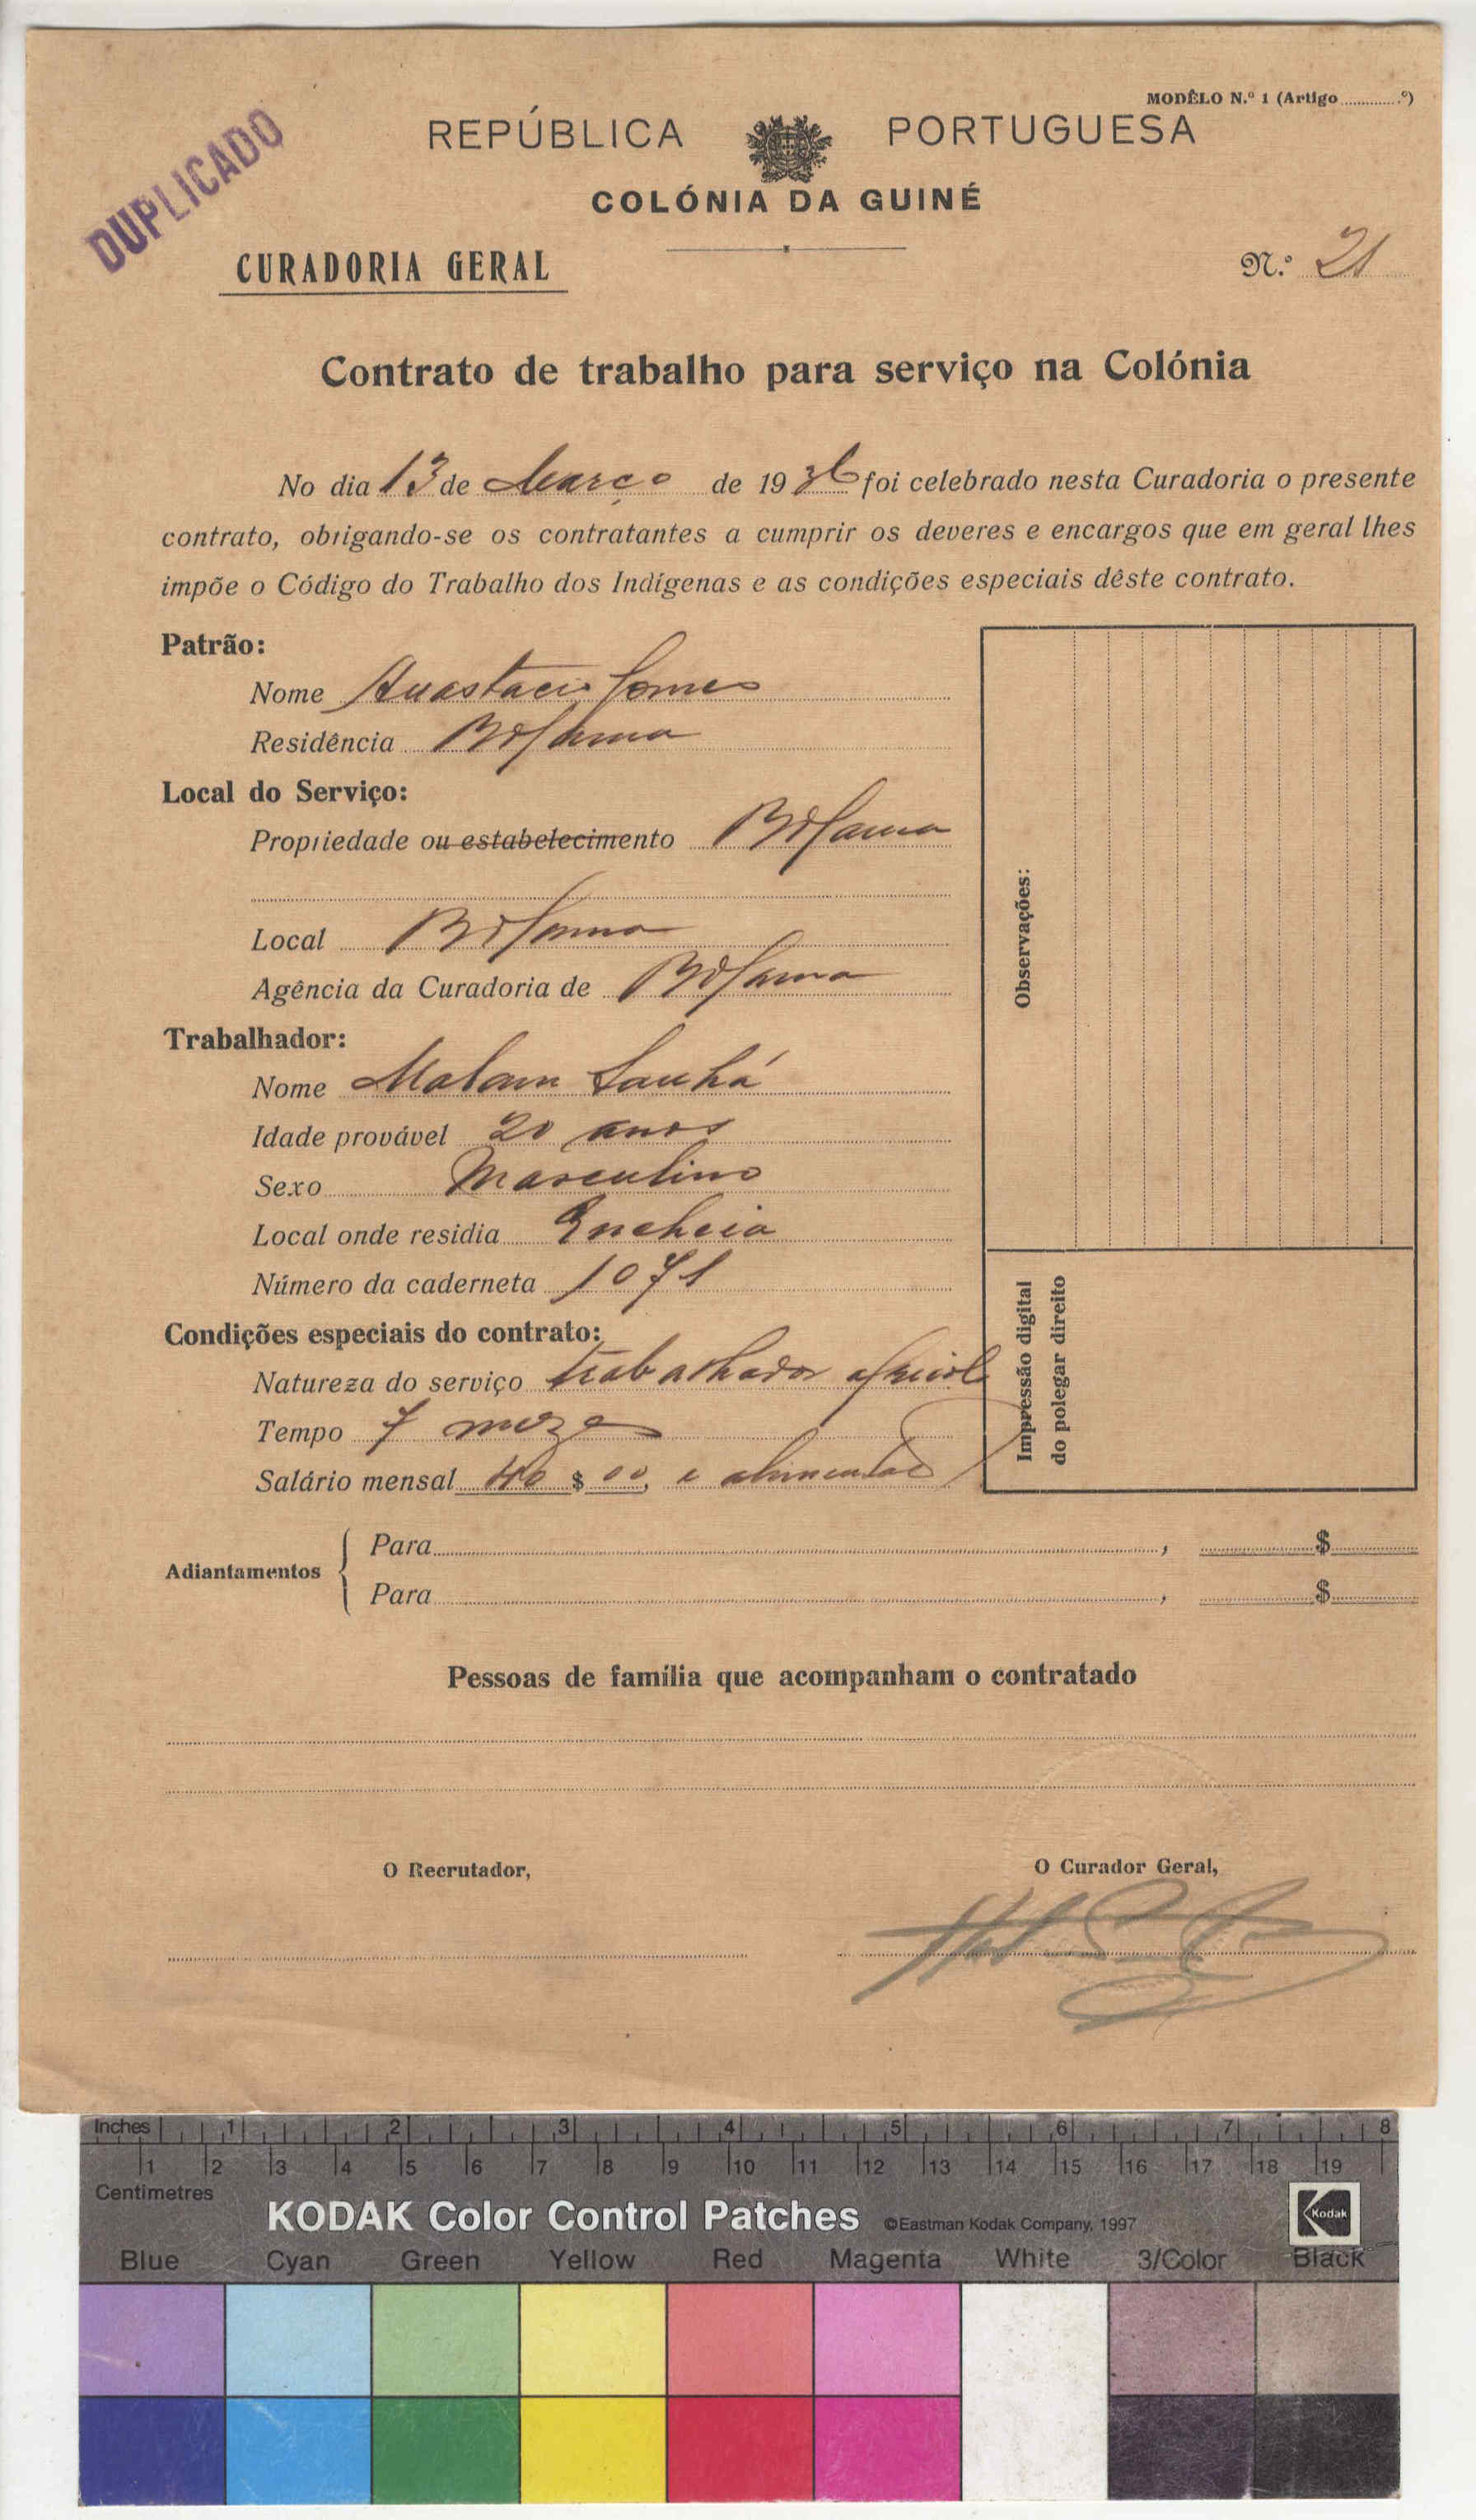 MODÊLO N.º 1 (Artigo .............º)
DUPLICADO
REPÚBLICA PORTUGUESA
COLÓNIA DA GUINÉ
CURADORIA GERAL
N.º 21
Contrato de trabalho para serviço na Colónia
No dia 13 de Março de 1936 foi celebrado nesta Curadoria o presente
contrato, obrigando-se os contratantes a cumprir os deveres e encargos que em geral lhes
impõe o Código do Trabalho dos Indígenas e as condições especiais dêste contrato.
Patrão:
Nome Anastacio Gomes
Residência Bolama
Local do Serviço:
Propriedade ou estabelecimento Bolama
Local Bolama
Agência da Curadoria de Bolama
Trabalhador:
Nome Malam Sanhá
Idade provável 20 anos
Sexo Masculino
Local onde residia Encheia
Número da caderneta 1071
Condições especiais do contrato:
Natureza do serviço trabalhador agricola
Tempo 7 mezes
Salário mensal 40 $ 00, e alimentação
Observações:
Impressão digital
do polegar direito
Adiantamentos
Para , $
Para , $
Pessoas de família que acompanham o contratado
O Recrutador,
O Curador Geral,
Inches 1 2 3 4 5 6 7 8
Centimetres 1 2 3 4 5 6 7 8 9 10 11 12 13 14 15 16 17 18 19
KODAK Color Control Patches ©Eastman Kodak Company, 1997 Kodak
Blue Cyan Green Yellow Red Magenta White 3/Color Black